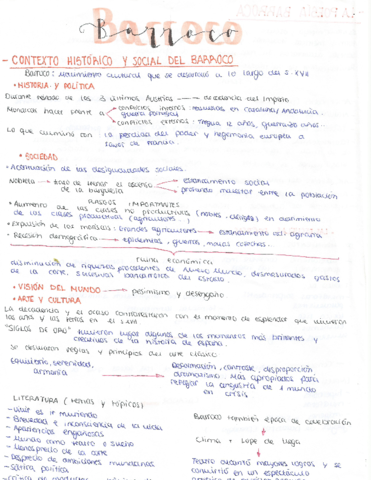 Barroco
- CONTEXTO HISTÓRICO Y SOCIAL DEL BARROCO
Barroco: movimiento cultural que se desarrolló a lo largo del S. XVII
• HISTORIA Y POLÍTICA
Durante reinado de los 3 últimos Austrias → decadencia del imperio
Monarcas hacer frente a → conflictos internos: revueltas en Cataluña/Andalucía.
→ conflictos externos: tregua 12 años, guerra 30 años
Lo que culminó con: la pérdida del poder y hegemonía europea a
favor de Francia.
• SOCIEDAD
• Acentuación de las desigualdades sociales.
Nobleza → trato de frenar el ascenso de la burguesía → estancamiento social
→ profundo malestar entre la población
RASGOS IMPORTANTES
• Aumento de las clases no productivas (nobles, clérigos) en detrimento
de las clases productivas (agricultores...)
• Expulsión de los moriscos: grandes agricultores → estancamiento agrario
• Recesión demográfica → epidemias, guerras, malas cosechas.
ruina económica
disminución de riquezas procedentes de Nuevo Mundo, desmesurados gastos
de la corte,
• VISIÓN DEL MUNDO → pesimismo y desengaño
• ARTE Y CULTURA
La decadencia y el ocaso contrastaron con el momento de esplendor que vivieron
las artes y las letras en el S. XVII
"SIGLOS DE ORO" tuvieron lugar algunos de los momentos más brillantes y
de la historia de España.
Se desviaron reglas y principios del arte clásico
Equilibrio, serenidad,
armonía
Deformación, contraste, desproporción
dinamismo. Más apropiados para
reflejar la angustia de 1 mundo
en crisis
LITERATURA (temas y tópicos)
Barroco también época de renovación
- Brevedad e inconsistencia de la vida
- Apariencias engañosas
- Mundo como teatro o sueño
- Menosprecio de la corte
- Desprecio de ambiciones mundanas
- Sátira política
→ Lope de Vega
Teatro alcanzó mayores logros y se
convirtió en un espectáculo